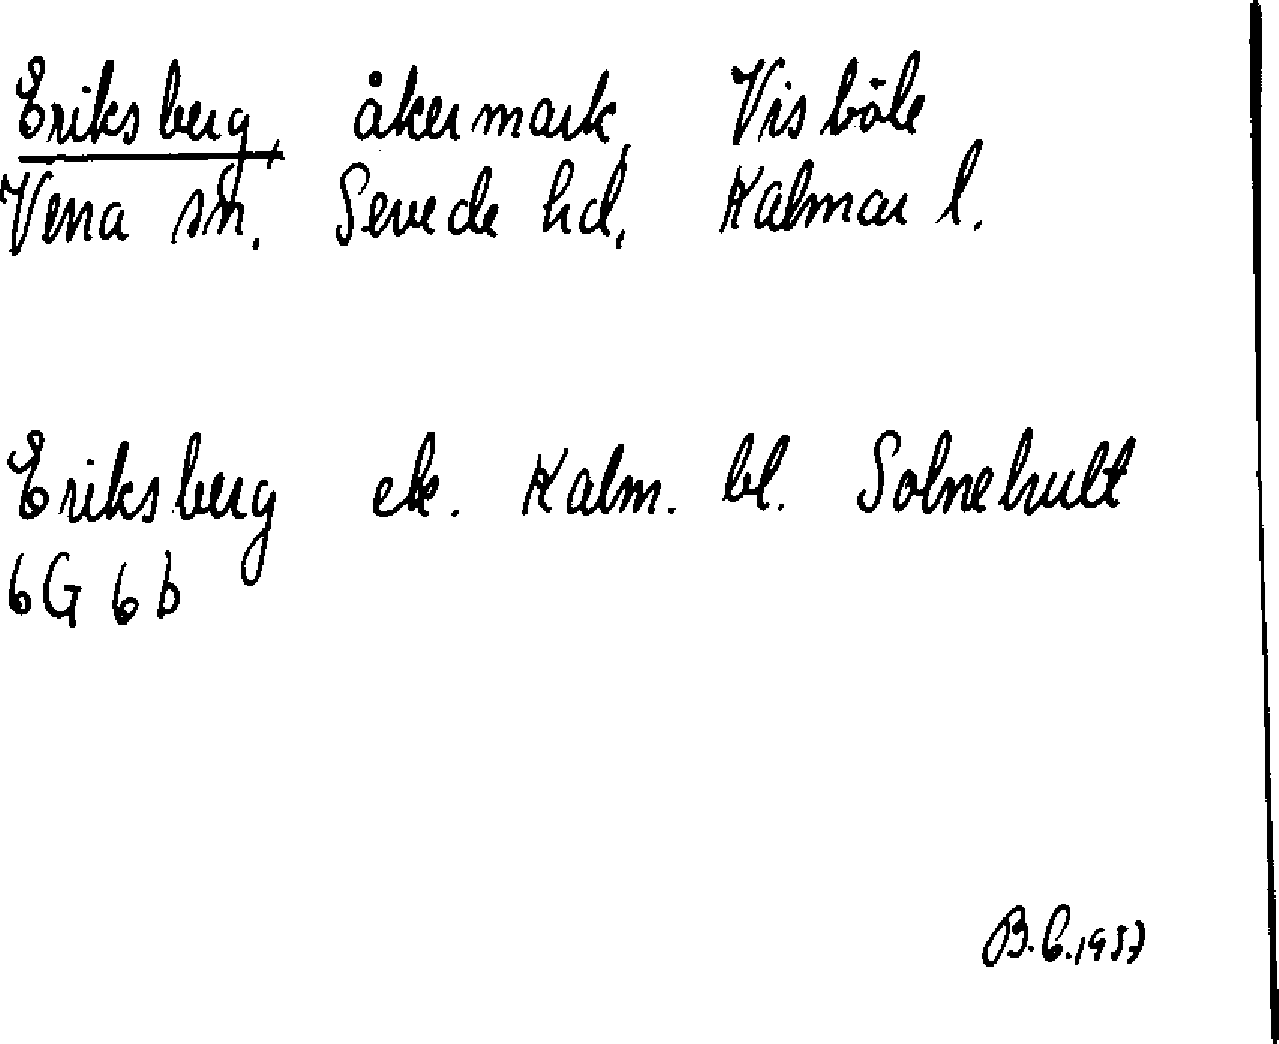 Eriksberg, åkermark, Visböle
Vena sn. Sevede hd, Kalmar l.
Eriksberg ek. Kalm. bl. Solnehult
6G 6b
B.C. 1937